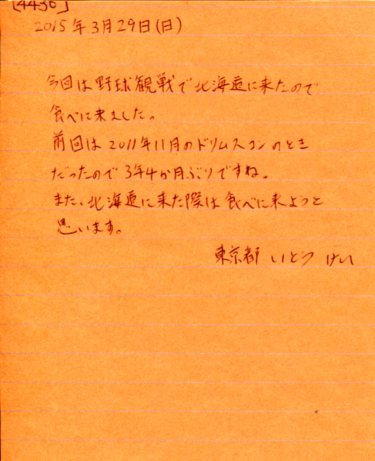 [4456]
2015年3月29日(日)
今回は野球観戦で北海道に来たので
食べに来ました。
前回は2011年11月のドリムスコンのとき
だったので3年4か月ぶりですね。
また、北海道に来た際は食べに来ようと
思います。
東京都 いとう けい